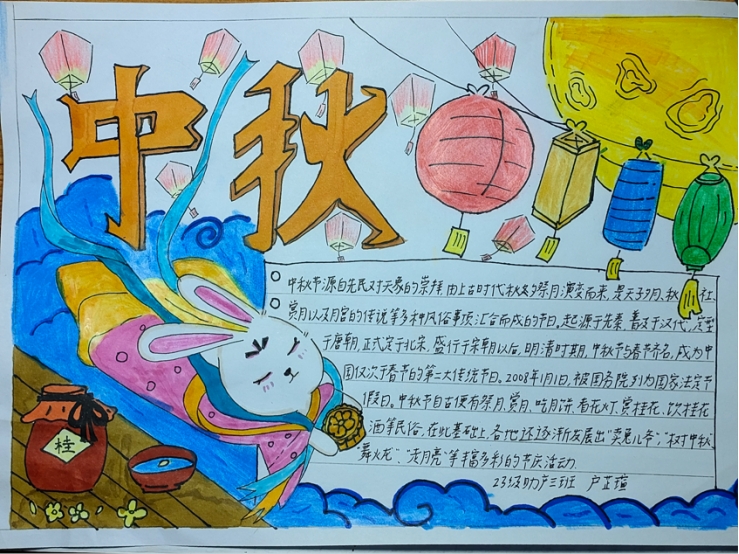 中秋
中秋节源自先民对天象的崇拜,由上古时代秋夕祭月演变而来,是天子夕月,秋社,
赏月以及月宫的传说等多种风俗事项汇合而成的节日。起源于先秦,普及于汉代,定型
于唐朝,正式定于北宋,盛行于宋朝以后,明清时期,中秋节与春节齐名,成为中
国仅次于春节的第二大传统节日。2008年1月1日,被国务院列为国家法定节
假日。中秋节自古便有祭月、赏月、吃月饼、看花灯、赏桂花、饮桂花
酒等民俗,在此基础上,各地还逐渐发展出“卖兔儿爷”、“树中秋”、
“舞火龙”、“走月亮”等丰富多彩的节庆活动.
23级助产三班 卢芷
桂